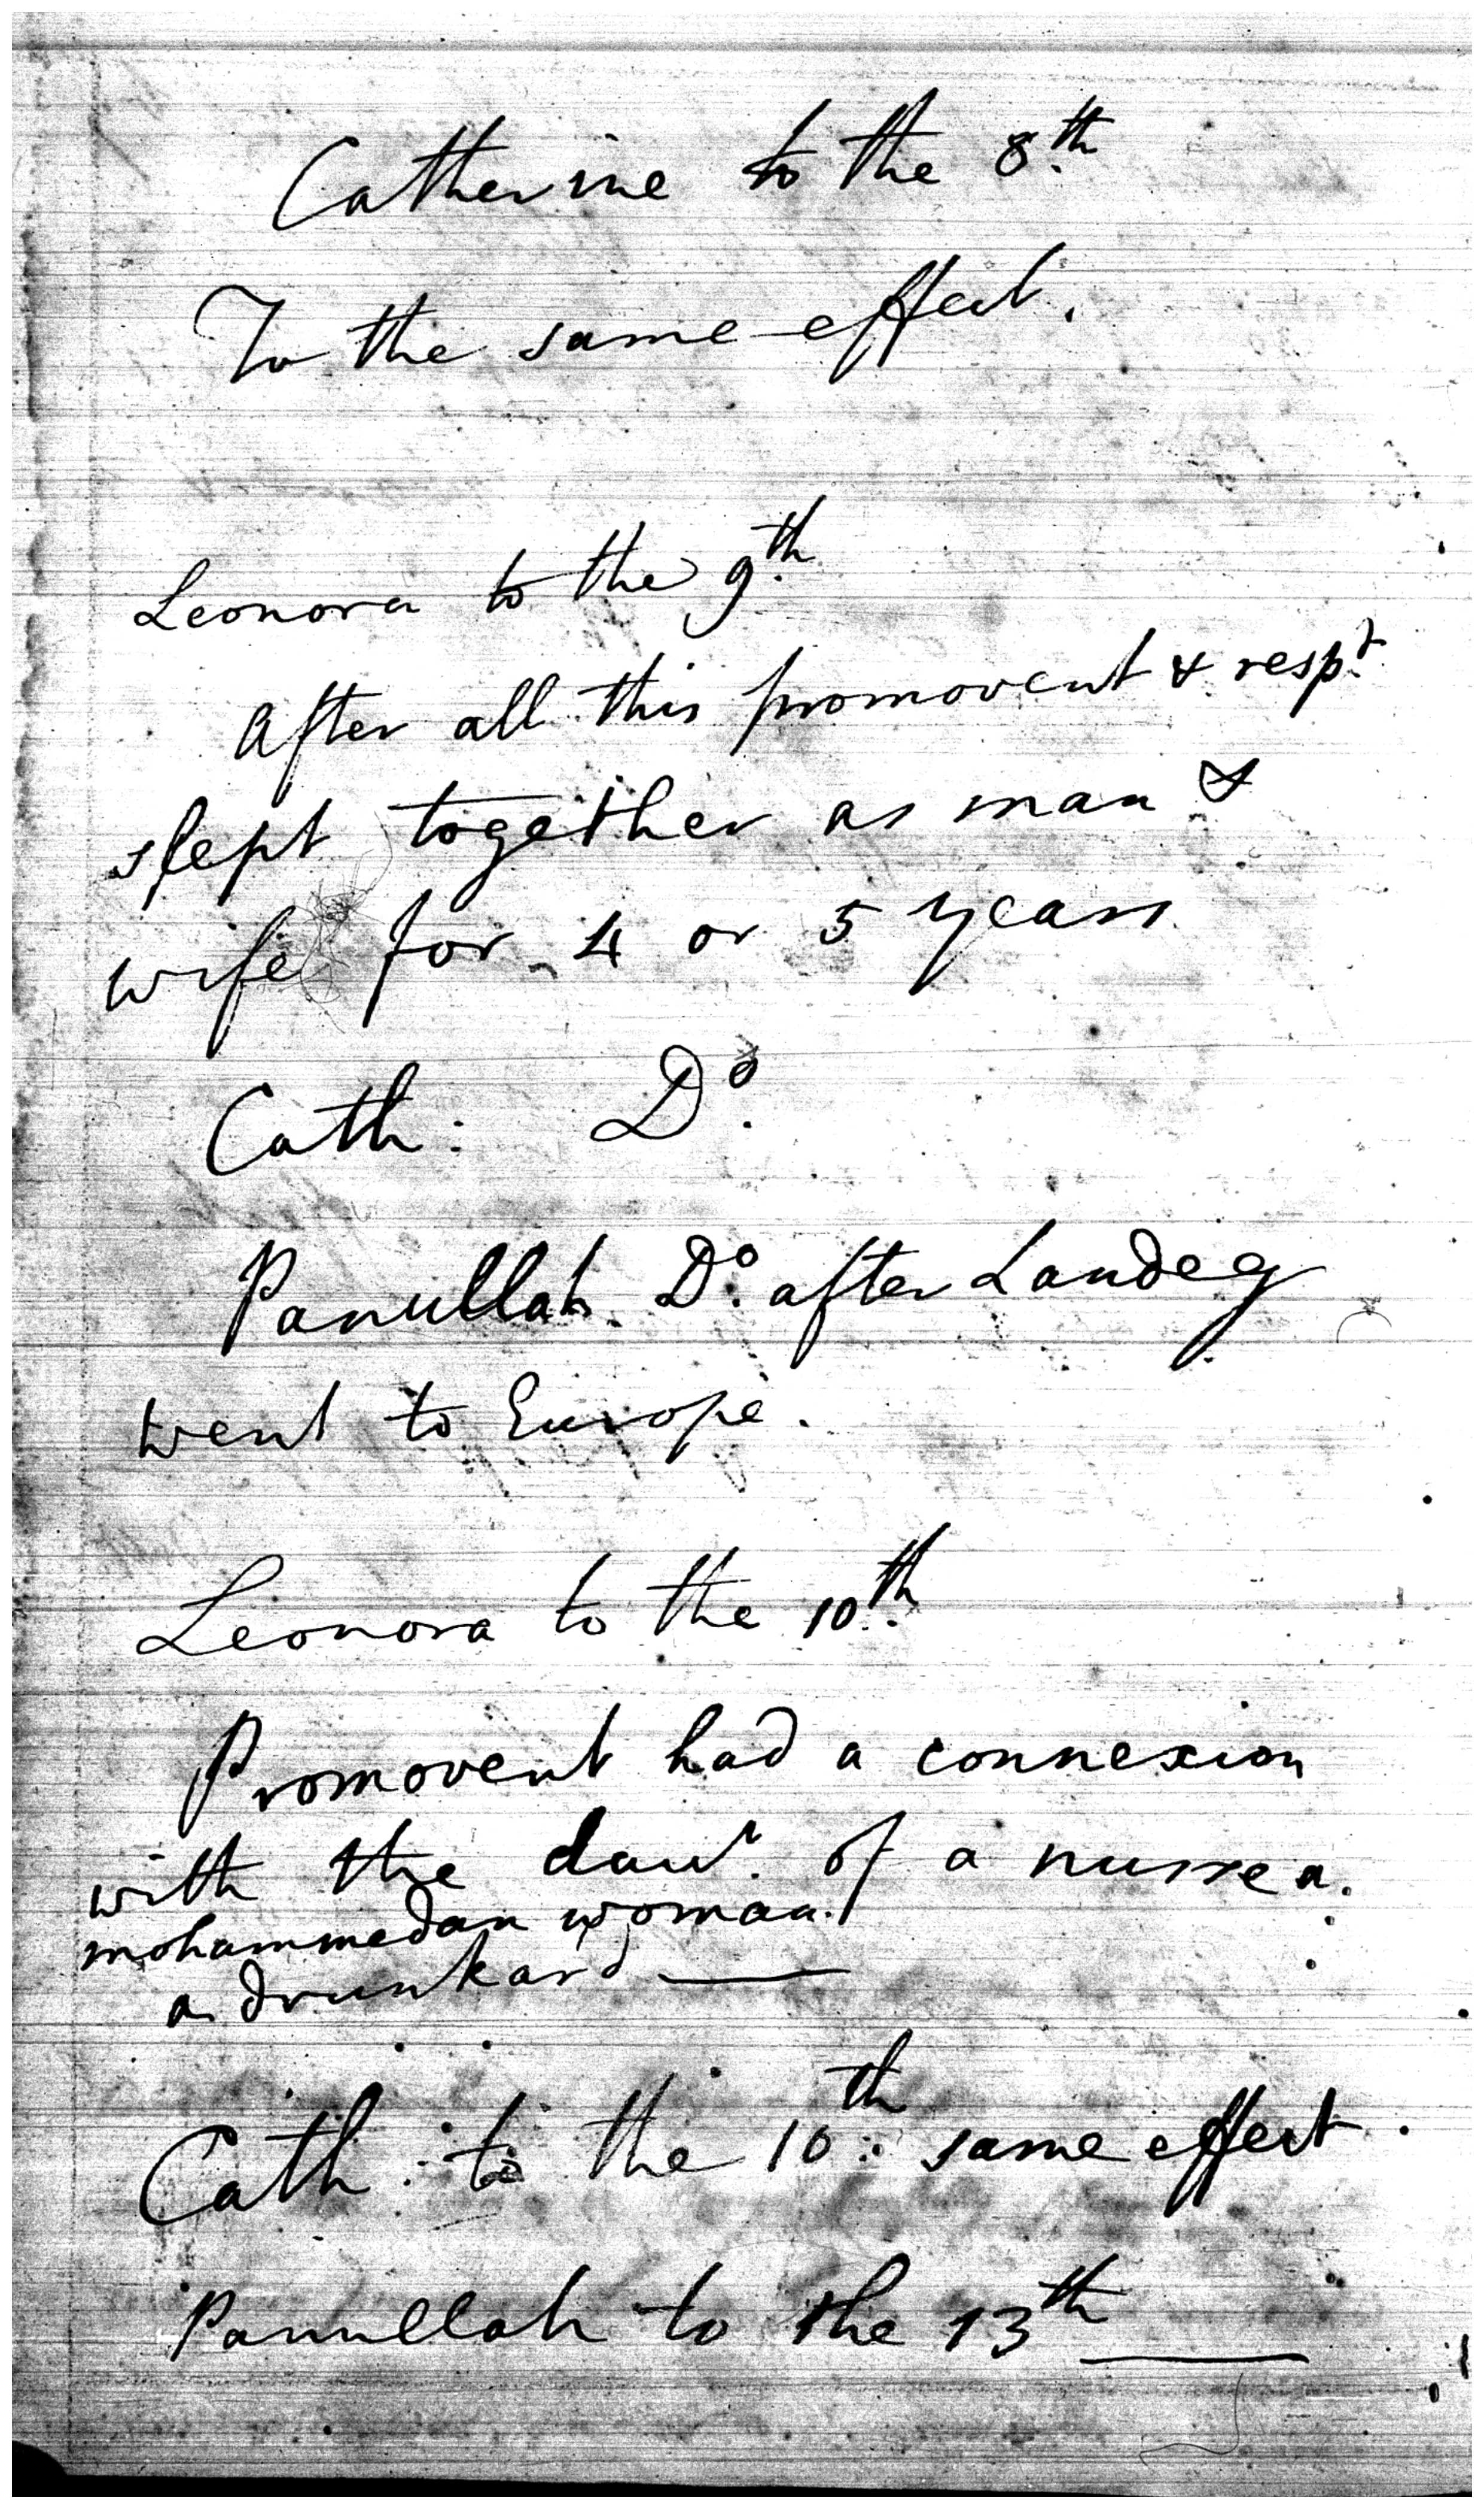 Catherine to the 8th
To the same effect.
Leonora to the 9th
After all this promovent & respt
slept together as man &
wife for 4 or 5 years
Cath: Do.
Panullah Do. after Landeg
went to Europe.
Leonora to the 10th
Promovent had a connexion
with the daur. of a nurse a
mohammedan woman.
a drunkard —
Cath: to the 10th: same effect.
Panullah to the 13th —